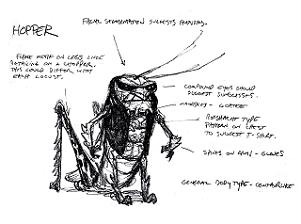 HOPPER
FACIAL SEGMENTATION SUGGESTS
FLAME MOTIF ON LEGS LIKE
DETAILING ON A CHOPPER,
THIS COULD DIFFER WITH
EACH LOCUST.
COMPOUND EYES COULD
SUGGEST SUNGLASSES.
MANDIBLES - GOATEE
TYPE
PATTERN ON CHEST
TO SUGGEST T-SHIRT.
SPIKES ON ARMS - GLOVES
GENERAL BODY TYPE - CENTAURLIKE